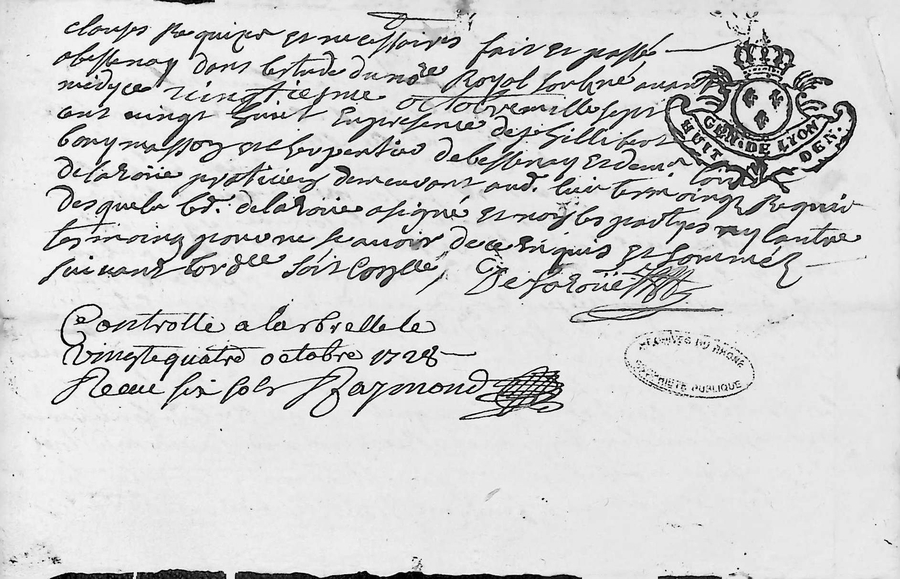 clauses Requises et necessaires fait et passé
a bessenay dans lestude du no.re Royal soubné avant
midy ce vingtiesme octobre mille sept
cent vingt huit En presence de s.r Gillibert
bony masson et cherpentier de bessenay et de m.r
de laroüe praticien demeurant aud. lieu temoingz Requis
desquels led. de laroüe a signé et non les partyes ny lautre
temoingz pour ne scavoir de ce Enquis et somméz
suivant lord.ce soit Conllé,
De laroüe
Controlle a larbrelle le
vingtequatre octobre 1728
Receu six sols Raymond
GEN. DE LYON
HUIT DEN.
ARCHIVES DU RHONE
PROPRIETE PUBLIQUE